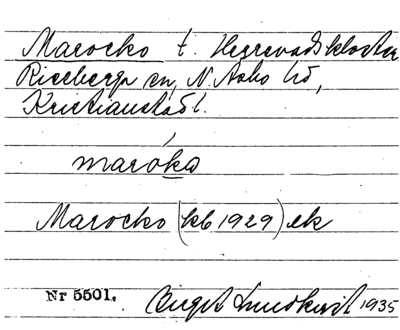 Marocko t. Herrevadskloster
Riseberga sn, N. Åsbo hd,
Kristianstads l.
maróka
Marocko (kb 1929) ek
Nr 5501. Birgit Lundkvist 1935